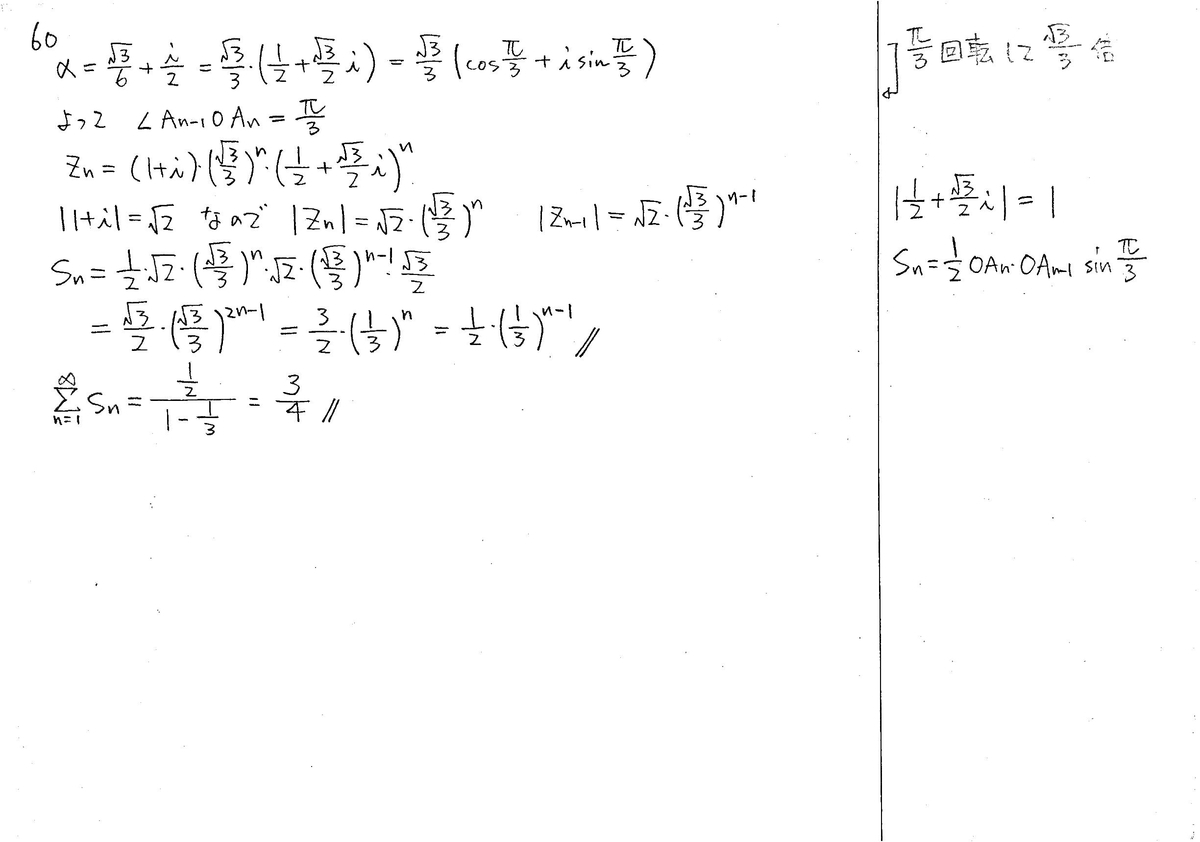 60
α = √3/6 + i/2 = √3/3·(1/2 + √3/2 i) = √3/3 (cos π/3 + i sin π/3)
よって ∠An-1OAn = π/3
Zn = (1+i)·(√3/3)^n·(1/2 + √3/2 i)^n
|1+i| = √2 なので |Zn| = √2·(√3/3)^n |Zn-1| = √2·(√3/3)^n-1
Sn = 1/2·√2·(√3/3)^n·√2·(√3/3)^n-1·√3/2
= √3/2·(√3/3)^2n-1 = 3/2·(1/3)^n = 1/2·(1/3)^n-1 //
∞Σn=1 Sn = 1/2/(1 - 1/3) = 3/4 //
π/3 回転して √3/3 倍
|1/2 + √3/2 i| = 1
Sn = 1/2 OAn·OAn-1 sin π/3